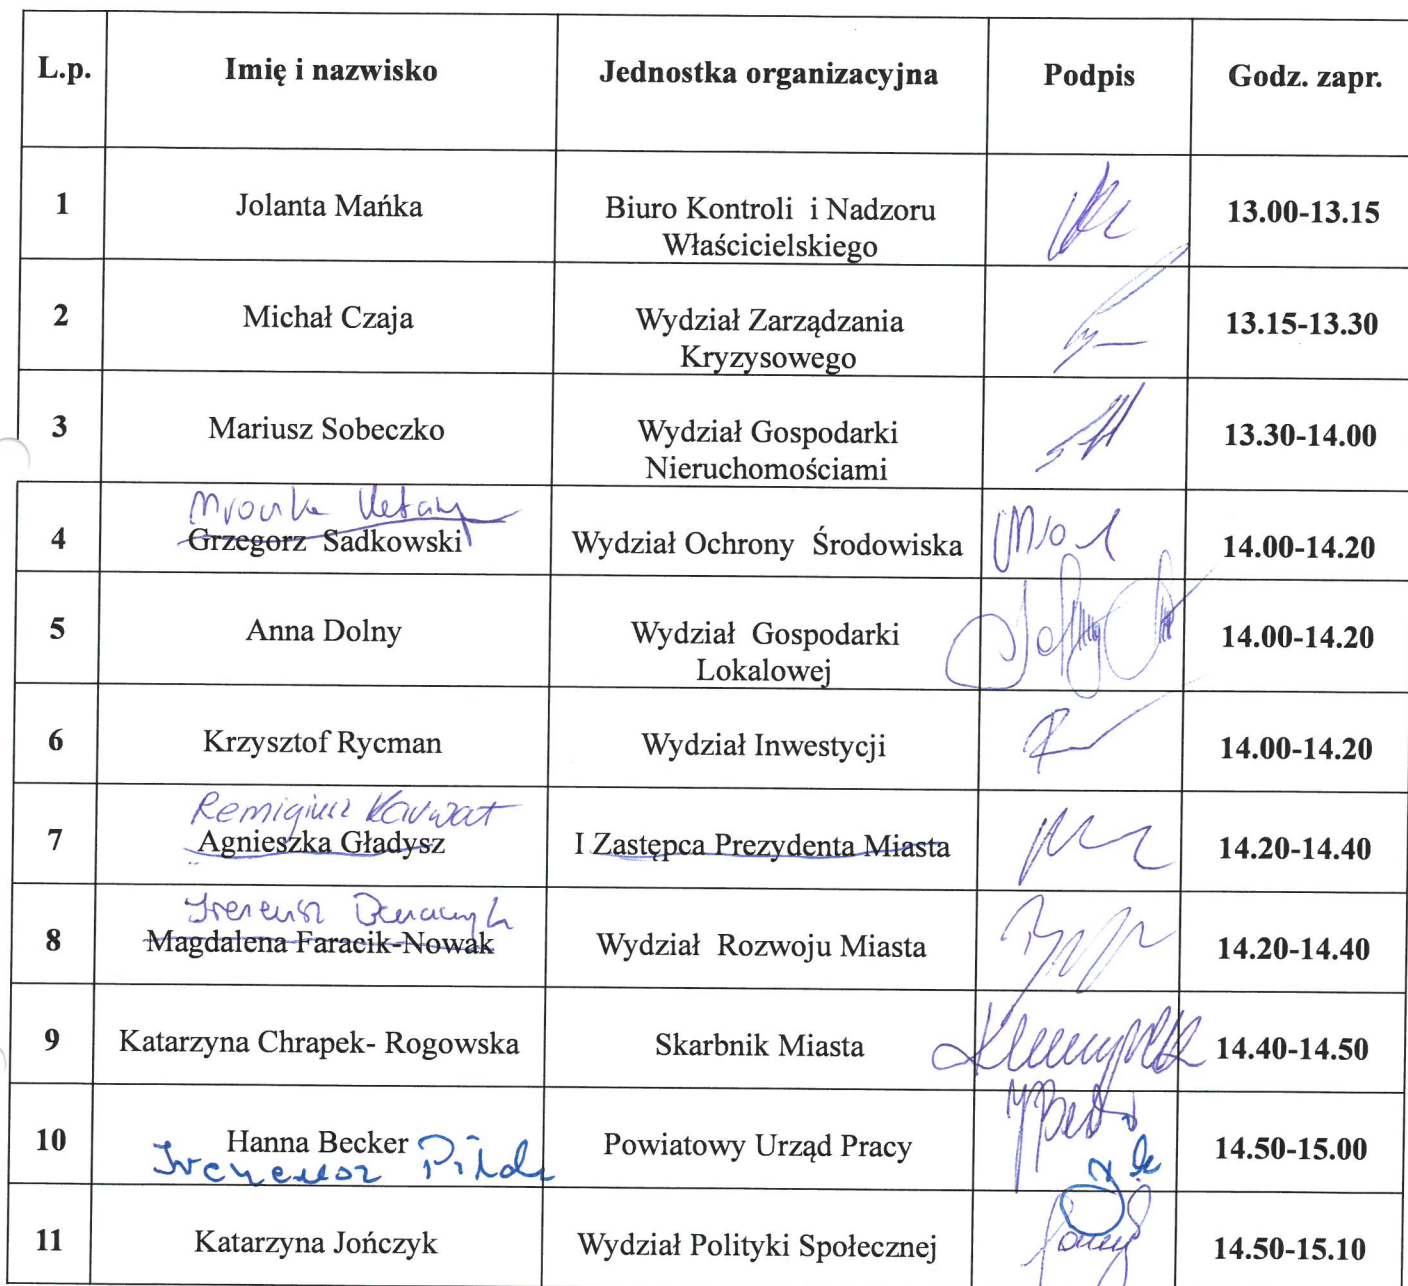 L.p. Imię i nazwisko Jednostka organizacyjna Podpis Godz. zapr.
1 Jolanta Mańka Biuro Kontroli i Nadzoru 13.00-13.15
Właścicielskiego
2 Michał Czaja Wydział Zarządzania 13.15-13.30
Kryzysowego
3 Mariusz Sobeczko Wydział Gospodarki 13.30-14.00
Nieruchomościami
4 Grzegorz Sadkowski Wydział Ochrony Środowiska 14.00-14.20
5 Anna Dolny Wydział Gospodarki 14.00-14.20
Lokalowej
6 Krzysztof Rycman Wydział Inwestycji 14.00-14.20
Remigiusz
7 Agnieszka Gładysz I Zastępca Prezydenta Miasta 14.20-14.40
Ireneusz
8 Magdalena Faracik-Nowak Wydział Rozwoju Miasta 14.20-14.40
9 Katarzyna Chrapek- Rogowska Skarbnik Miasta 14.40-14.50
10 Hanna Becker Powiatowy Urząd Pracy 14.50-15.00
Ireneusz
11 Katarzyna Jończyk Wydział Polityki Społecznej 14.50-15.10